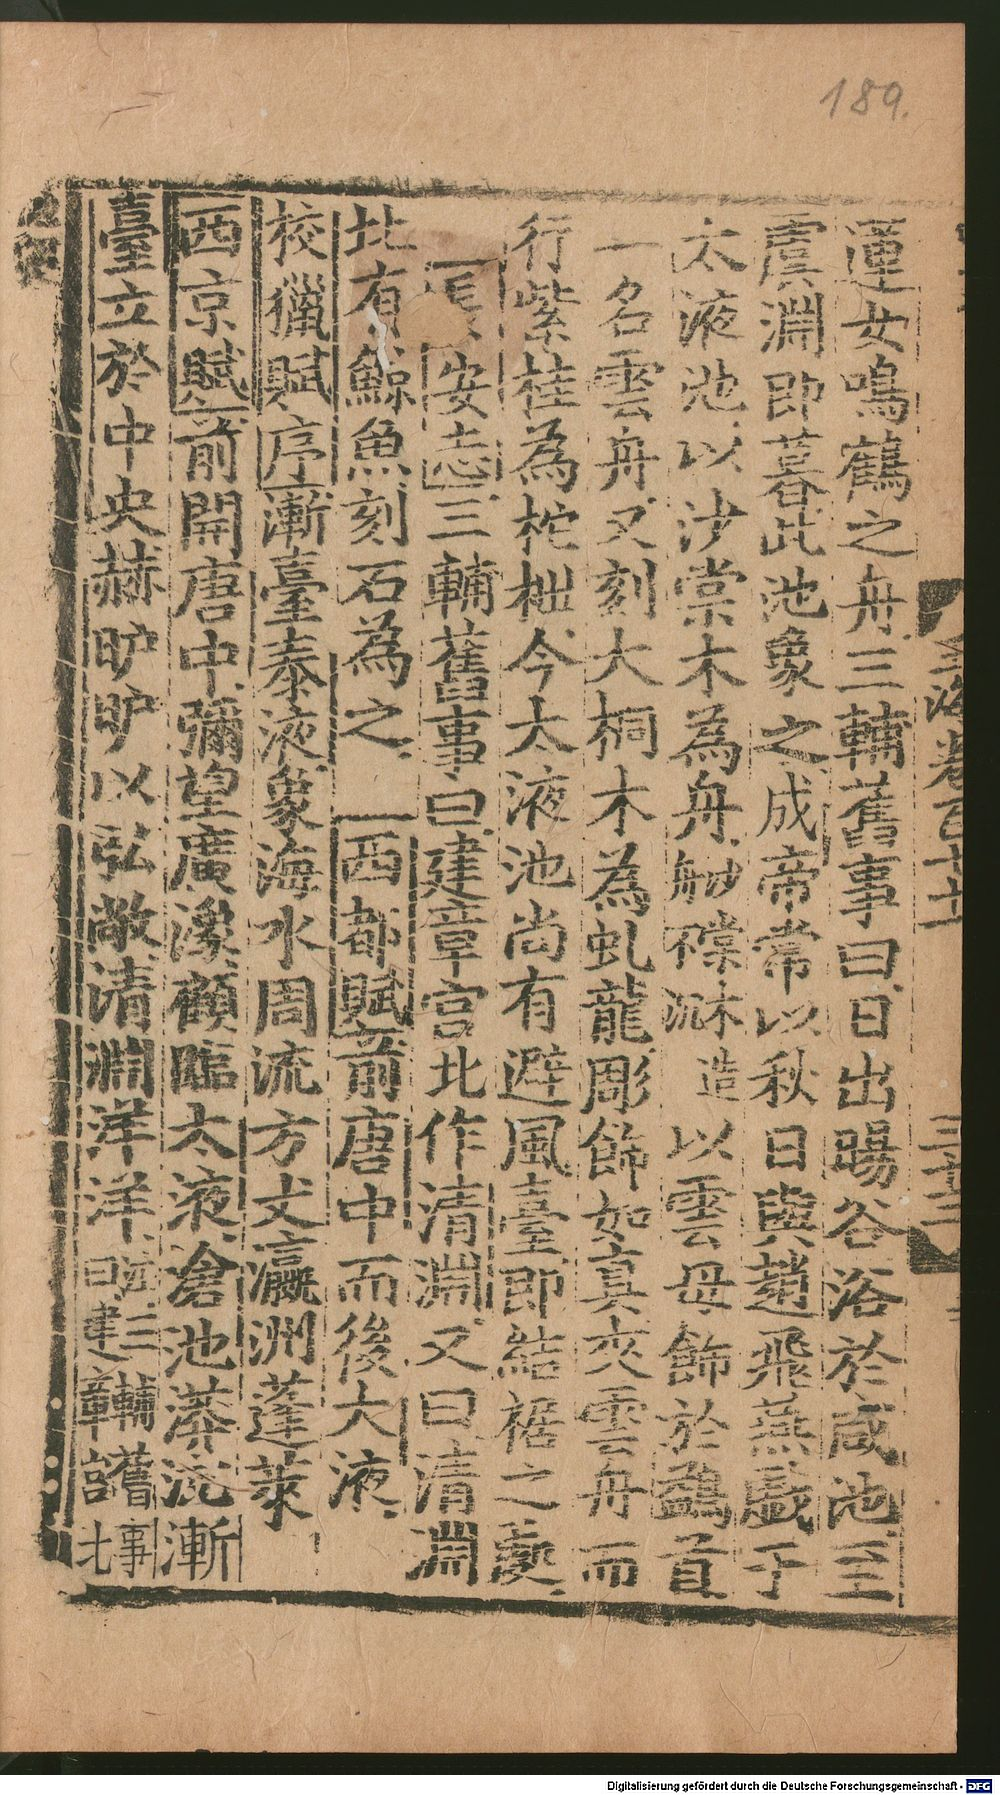 189.
運女鳴鶴之舟三輔舊事曰日出暘谷浴於咸池至
虞淵即暮此池象之成帝常以秋日與趙飛燕戲于
太液池以沙棠木為舟舟沙棠木造不沉以雲母飾於鷁首
一名雲舟又刻大桐木為虬龍彫飾如真夾雲舟而
行紫桂為柁枻今太液池尚有避風臺即結裾之處
安志三輔舊事曰建章宮北作清淵又曰清淵
北有鯨魚刻石為之 西都賦前唐中而後大液
校獵賦序漸臺泰液象海水周流方丈瀛洲蓬萊
西京賦前開唐中彌望廣潒顧臨太液滄池漭沆漸
臺立於中央赫昈昈以弘敞清淵洋洋三輔舊事曰建章宮北
卷百七十一
Digitalisierung gefördert durch die Deutsche Forschungsgemeinschaft - DFG